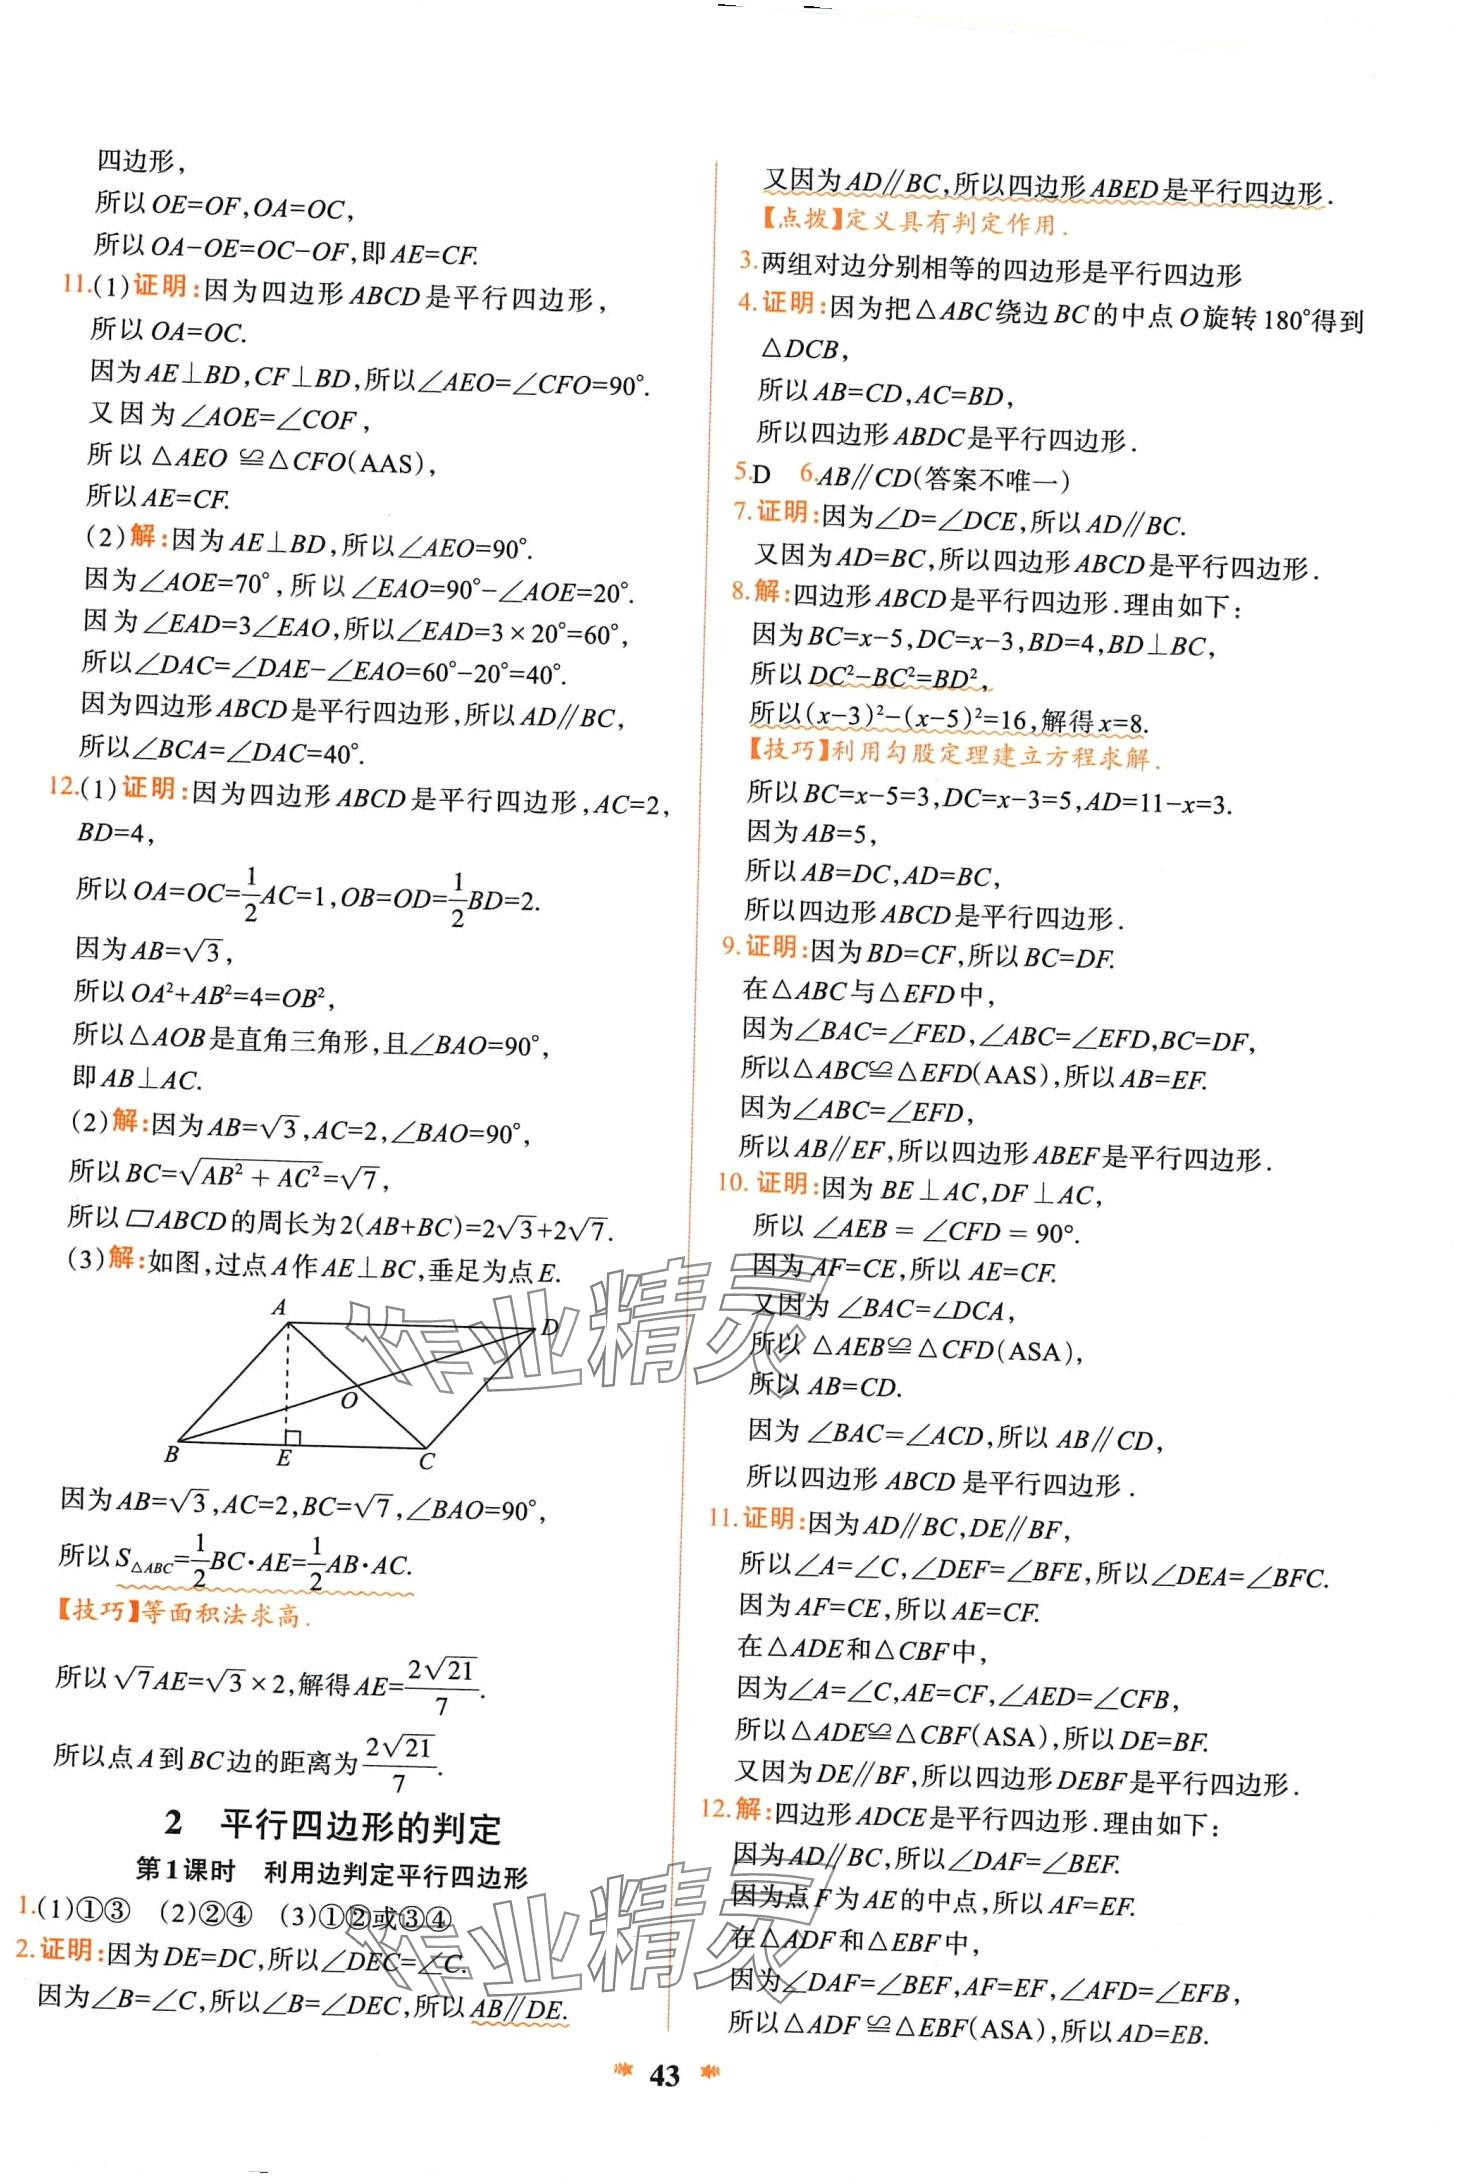 四边形，
所以OE=OF,OA=OC,
所以OA-OE=OC-OF,即AE=CF.
11.(1)证明:因为四边形ABCD是平行四边形，
所以OA=OC.
因为AE⊥BD,CF⊥BD,所以∠AEO=∠CFO=90°.
又因为∠AOE=∠COF,
所以△AEO≌△CFO(AAS),
所以AE=CF.
(2)解:因为AE⊥BD,所以∠AEO=90°.
因为∠AOE=70°,所以∠EAO=90°-∠AOE=20°.
因为∠EAD=3∠EAO,所以∠EAD=3×20°=60°,
所以∠DAC=∠DAE-∠EAO=60°-20°=40°.
因为四边形ABCD是平行四边形,所以AD∥BC,
所以∠BCA=∠DAC=40°.
12.(1)证明:因为四边形ABCD是平行四边形,AC=2,
BD=4,
所以OA=OC=1/2AC=1,OB=OD=1/2BD=2.
因为AB=√3,
所以OA²+AB²=4=OB²,
所以△AOB是直角三角形,且∠BAO=90°,
即AB⊥AC.
(2)解:因为AB=√3,AC=2,∠BAO=90°,
所以BC=√(AB²+AC²)=√7,
所以▱ABCD的周长为2(AB+BC)=2√3+2√7.
(3)解:如图,过点A作AE⊥BC,垂足为点E.
A
D
O
B
E
C
因为AB=√3,AC=2,BC=√7,∠BAO=90°,
所以S△ABC=1/2BC·AE=1/2AB·AC.
【技巧】等面积法求高.
所以√7AE=√3×2,解得AE=2√21/7.
所以点A到BC边的距离为2√21/7.
2 平行四边形的判定
第1课时 利用边判定平行四边形
1.(1)①③ (2)②④ (3)①②或③④
2.证明:因为DE=DC,所以∠DEC=∠C.
因为∠B=∠C,所以∠B=∠DEC,所以AB∥DE.
又因为AD∥BC,所以四边形ABED是平行四边形.
【点拨】定义具有判定作用.
3.两组对边分别相等的四边形是平行四边形
4.证明:因为把△ABC绕边BC的中点O旋转180°得到
△DCB,
所以AB=CD,AC=BD,
所以四边形ABDC是平行四边形.
5.D 6.AB∥CD(答案不唯一)
7.证明:因为∠D=∠DCE,所以AD∥BC.
又因为AD=BC,所以四边形ABCD是平行四边形.
8.解:四边形ABCD是平行四边形.理由如下:
因为BC=x-5,DC=x-3,BD=4,BD⊥BC,
所以DC²-BC²=BD²,
所以(x-3)²-(x-5)²=16,解得x=8.
【技巧】利用勾股定理建立方程求解.
所以BC=x-5=3,DC=x-3=5,AD=11-x=3.
因为AB=5,
所以AB=DC,AD=BC,
所以四边形ABCD是平行四边形.
9.证明:因为BD=CF,所以BC=DF.
在△ABC与△EFD中,
因为∠BAC=∠FED,∠ABC=∠EFD,BC=DF,
所以△ABC≌△EFD(AAS),所以AB=EF.
因为∠ABC=∠EFD,
所以AB∥EF,所以四边形ABEF是平行四边形.
10.证明:因为BE⊥AC,DF⊥AC,
所以∠AEB=∠CFD=90°.
因为AF=CE,所以AE=CF.
又因为∠BAC=∠DCA,
所以△AEB≌△CFD(ASA),
所以AB=CD.
因为∠BAC=∠ACD,所以AB∥CD,
所以四边形ABCD是平行四边形.
11.证明:因为AD∥BC,DE∥BF,
所以∠A=∠C,∠DEF=∠BFE,所以∠DEA=∠BFC.
因为AF=CE,所以AE=CF.
在△ADE和△CBF中,
因为∠A=∠C,AE=CF,∠AED=∠CFB,
所以△ADE≌△CBF(ASA),所以DE=BF.
又因为DE∥BF,所以四边形DEBF是平行四边形.
12.解:四边形ADCE是平行四边形.理由如下:
因为AD∥BC,所以∠DAF=∠BEF.
因为点F为AE的中点,所以AF=EF.
在△ADF和△EBF中,
因为∠DAF=∠BEF,AF=EF,∠AFD=∠EFB,
所以△ADF≌△EBF(ASA),所以AD=EB.
43
作业精灵
作业精灵